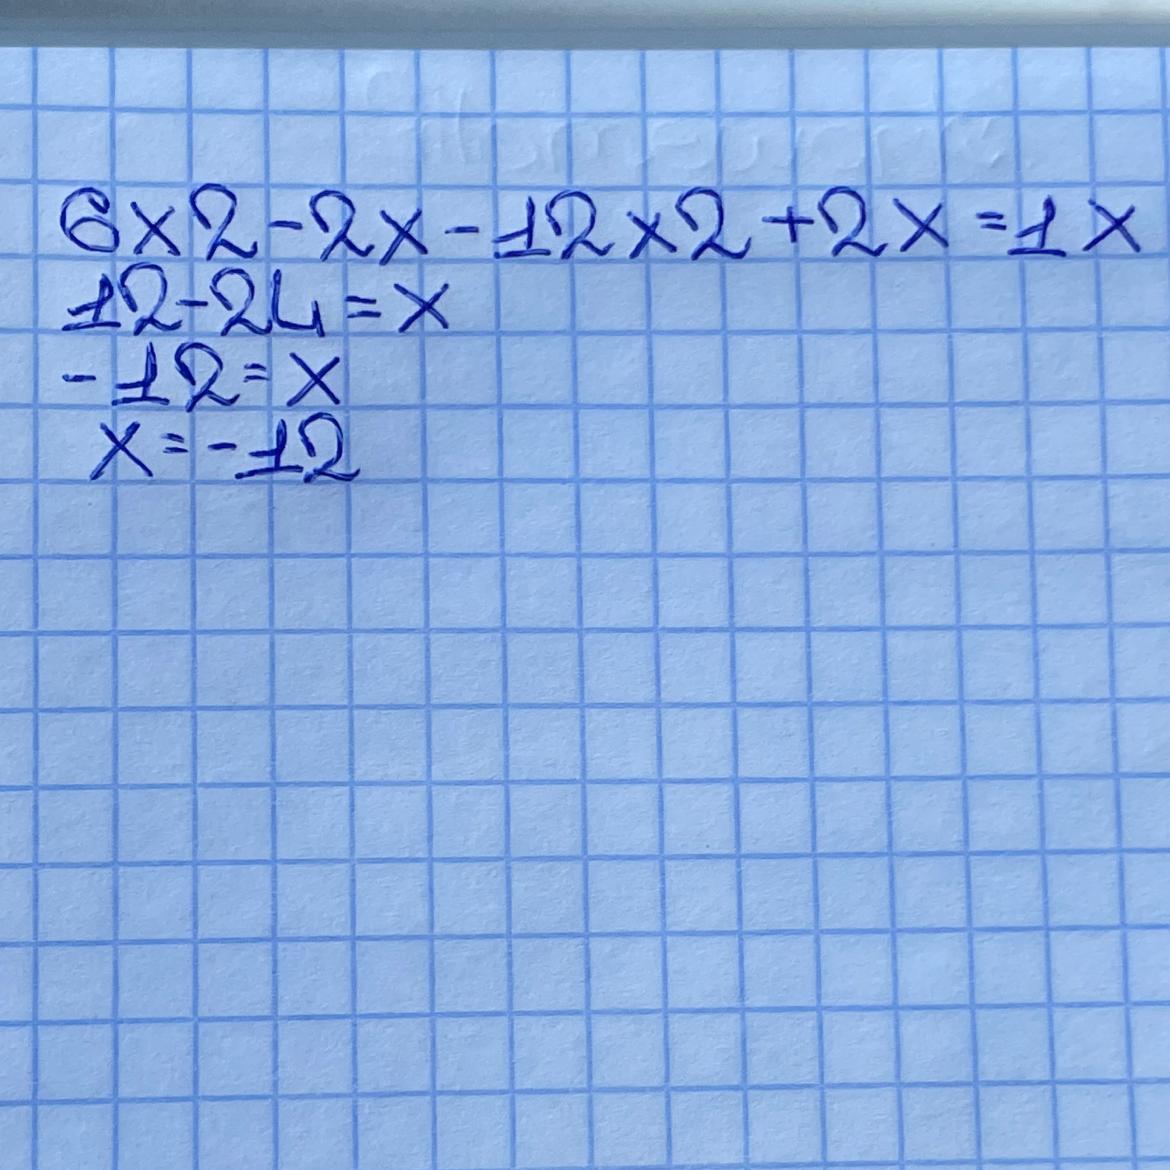 6x2-2x-12x2+2x=1x
12-24=x
-12=x
x=-12